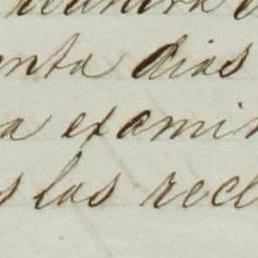 enta dias
a exami
s las recl